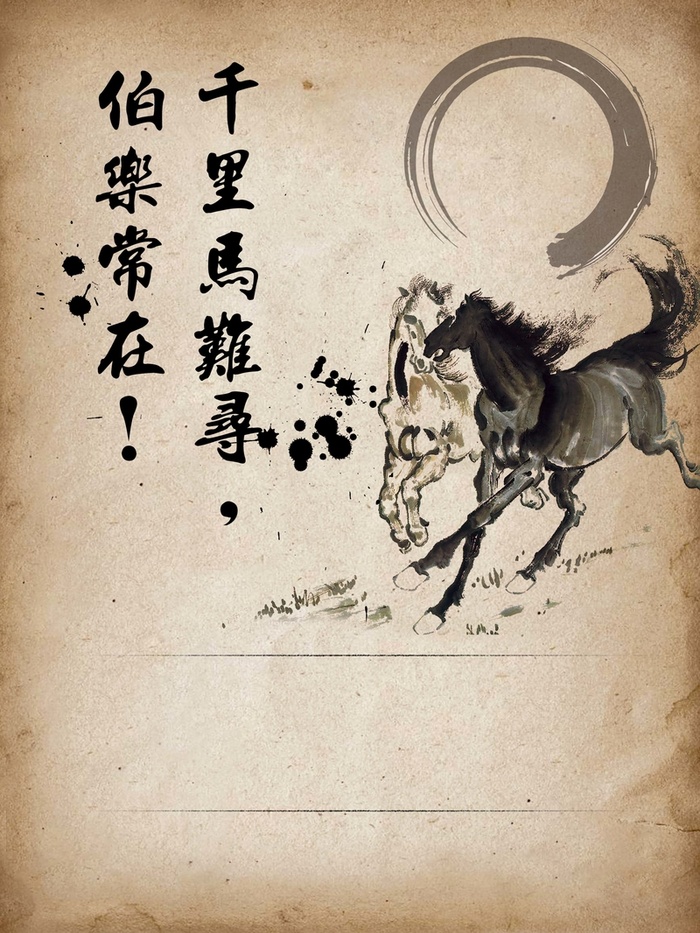 千里馬難尋，
伯樂常在！